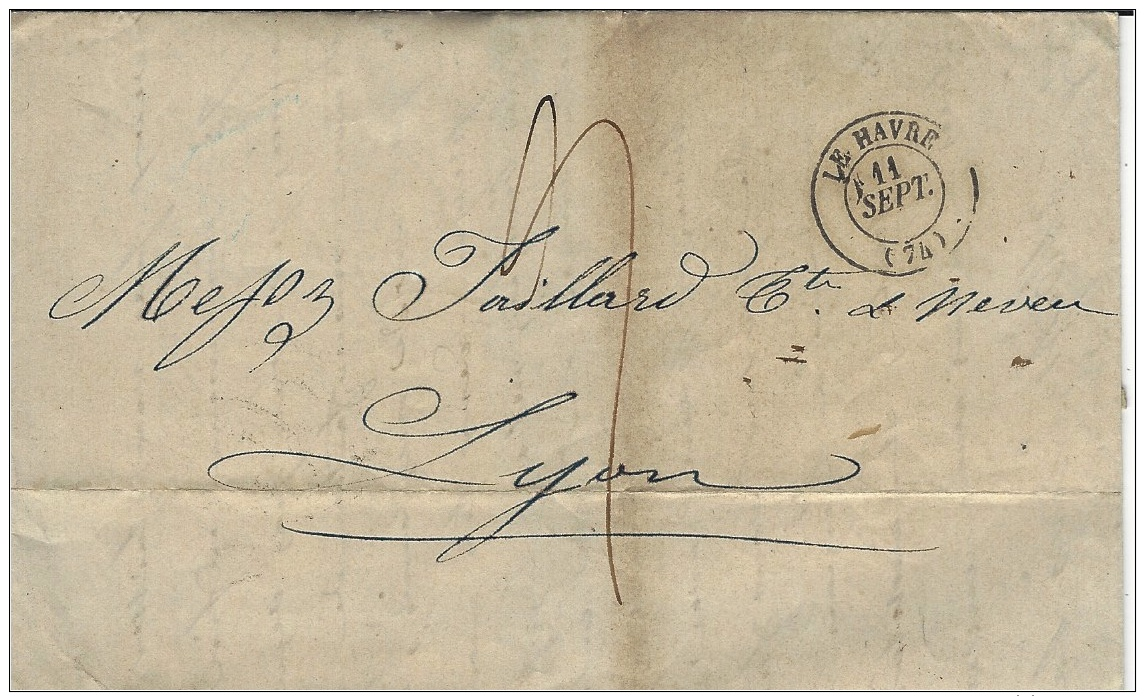 LE HAVRE
11
SEPT.
(74)
Messrs Taillard Cte & Neveu
Lyon